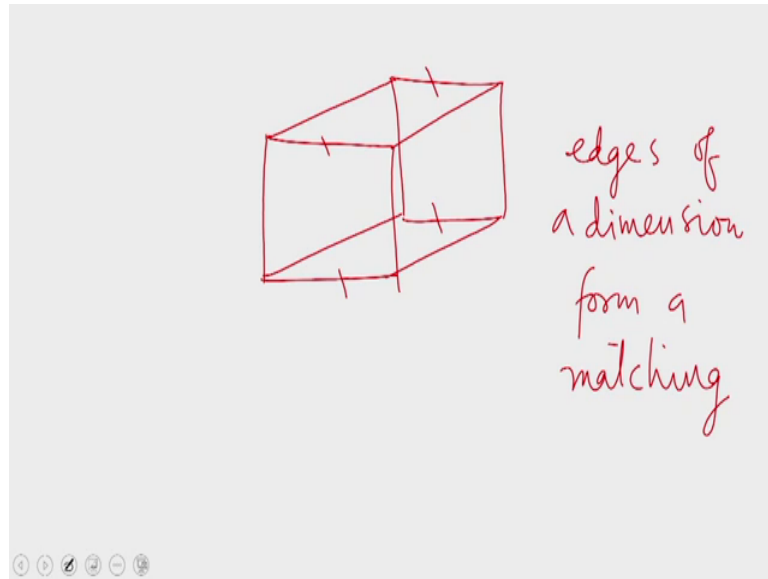 edges of
a dimension
form a
matching